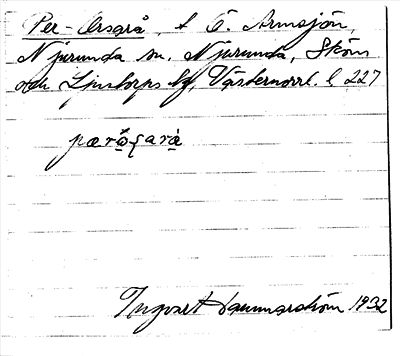 Per-Orsgrå, t Ö. Armsjön,
Njurunda sn. Njurunda, Sköns
och Ljustorps tg, Västernorrl. l. 227
pærὼ̨ʂarà
Ingvart Hammarström 1932